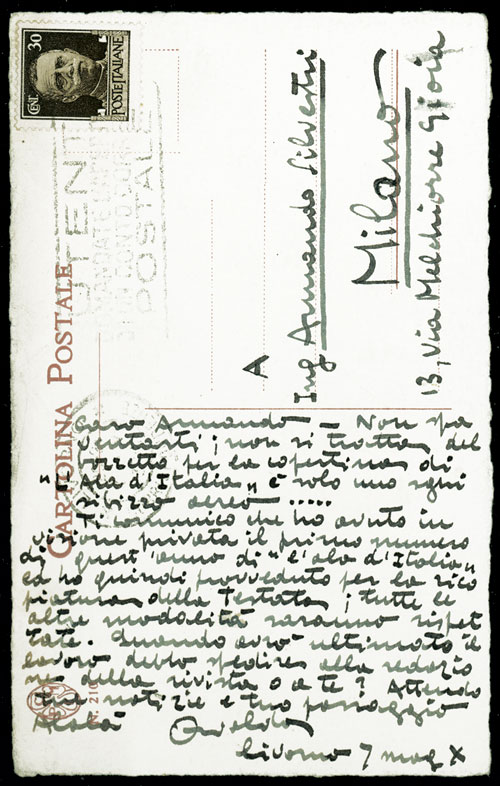 CENT. 30
POSTE ITALIANE
UTENTI
POSTALE
CARTOLINA POSTALE
A
Ing Armando Silvestri
Milano
13, Via Melchiorre Gioia
Caro Armando – Non spa
ventarti; non si tratta del
bozzetto per la copertina di
"L'Ala d'Italia" è solo uno sghi
ribizzo aereo .....
Ti comunico che ho avuto in
visione privata il primo numero
di quest'anno di "l'ala d'Italia"
ed ho quindi provveduto per la rico
piatura della Testata; tutte le
altre modalità saranno rispet
tate. Quando avrò ultimato il
lavoro debbo spedire alla redazio
ne della rivista o a te? Attendo
tue notizie e tuo passaggio
Alalà
Osvaldo
Livorno 7 mag X
N. 210